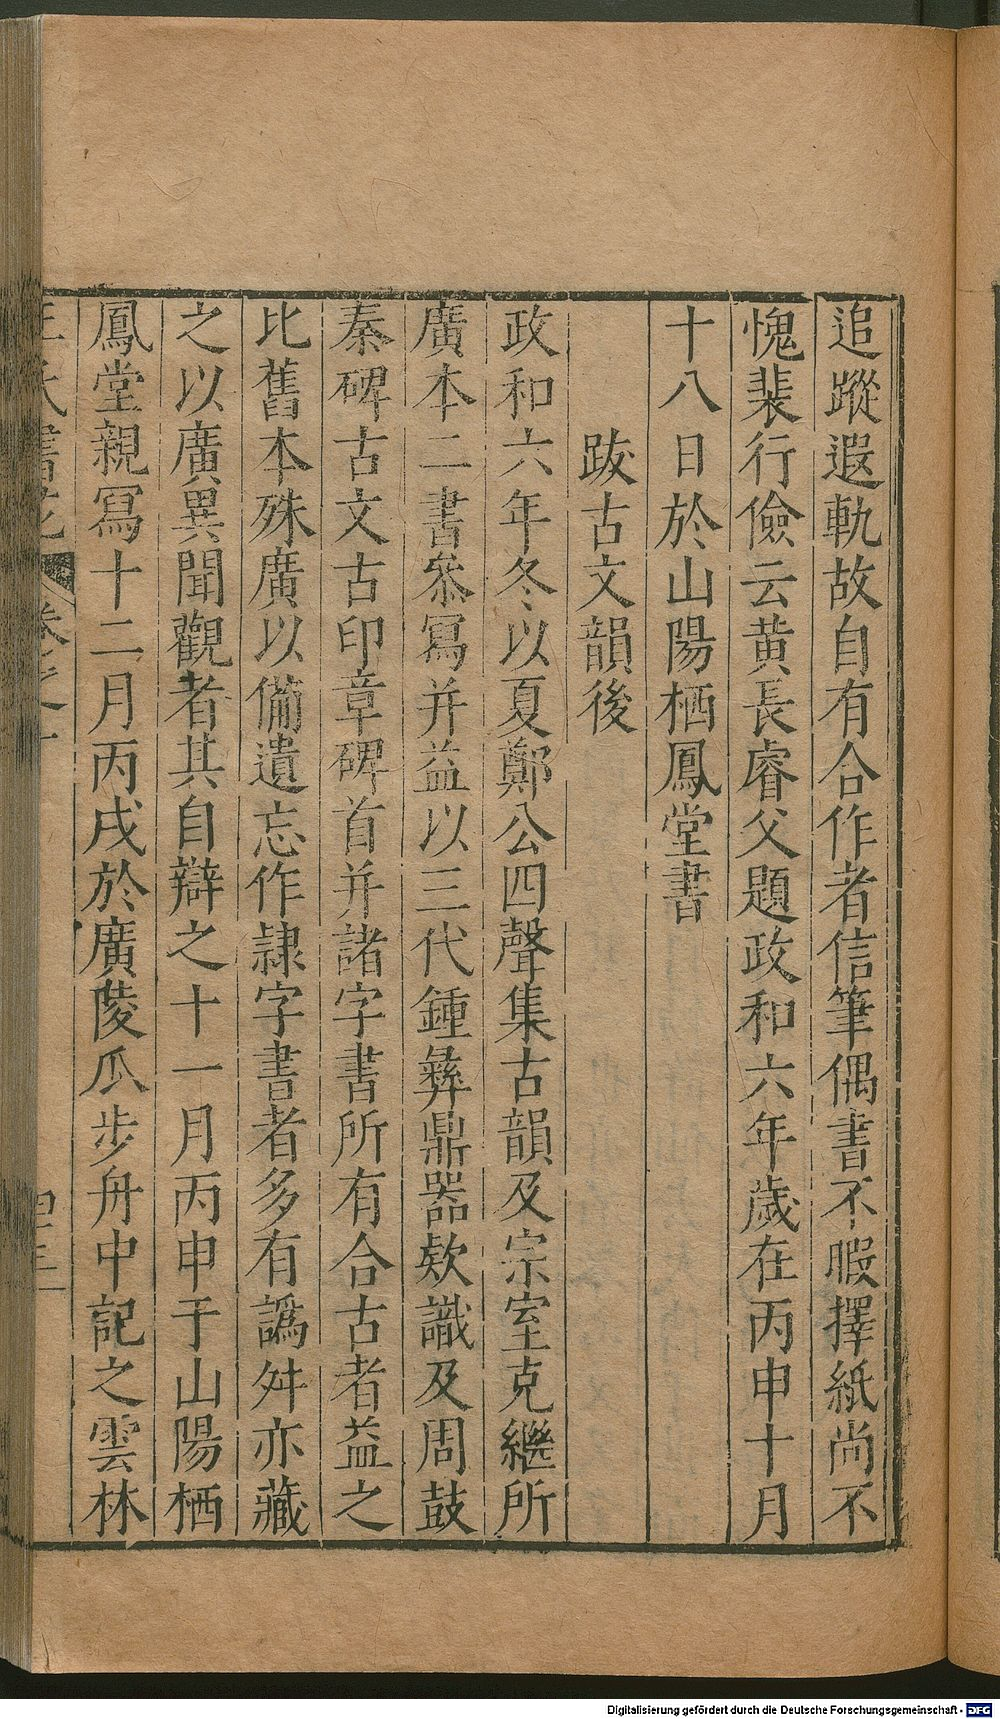 追蹤遐軌故自有合作者信筆偶書不暇擇紙尚不
愧裴行儉云黄長睿父題政和六年歲在丙申十月
十八日於山陽栖鳳堂書
跋古文韻後
政和六年冬以夏鄭公四聲集古韻及宗室克繼所
廣本二書叅寫并益以三代鍾彝鼎器欵識及周鼓
秦碑古文古印章碑首并諸字書所有合古者益之
比舊本殊廣以備遺忘作隷字書者多有譌舛亦藏
之以廣異聞觀者其自辯之十一月丙申于山陽栖
鳳堂親寫十二月丙戌於廣陵瓜步舟中記之雲林
王氏書苑 卷之
Digitalisierung gefördert durch die Deutsche Forschungsgemeinschaft - DFG